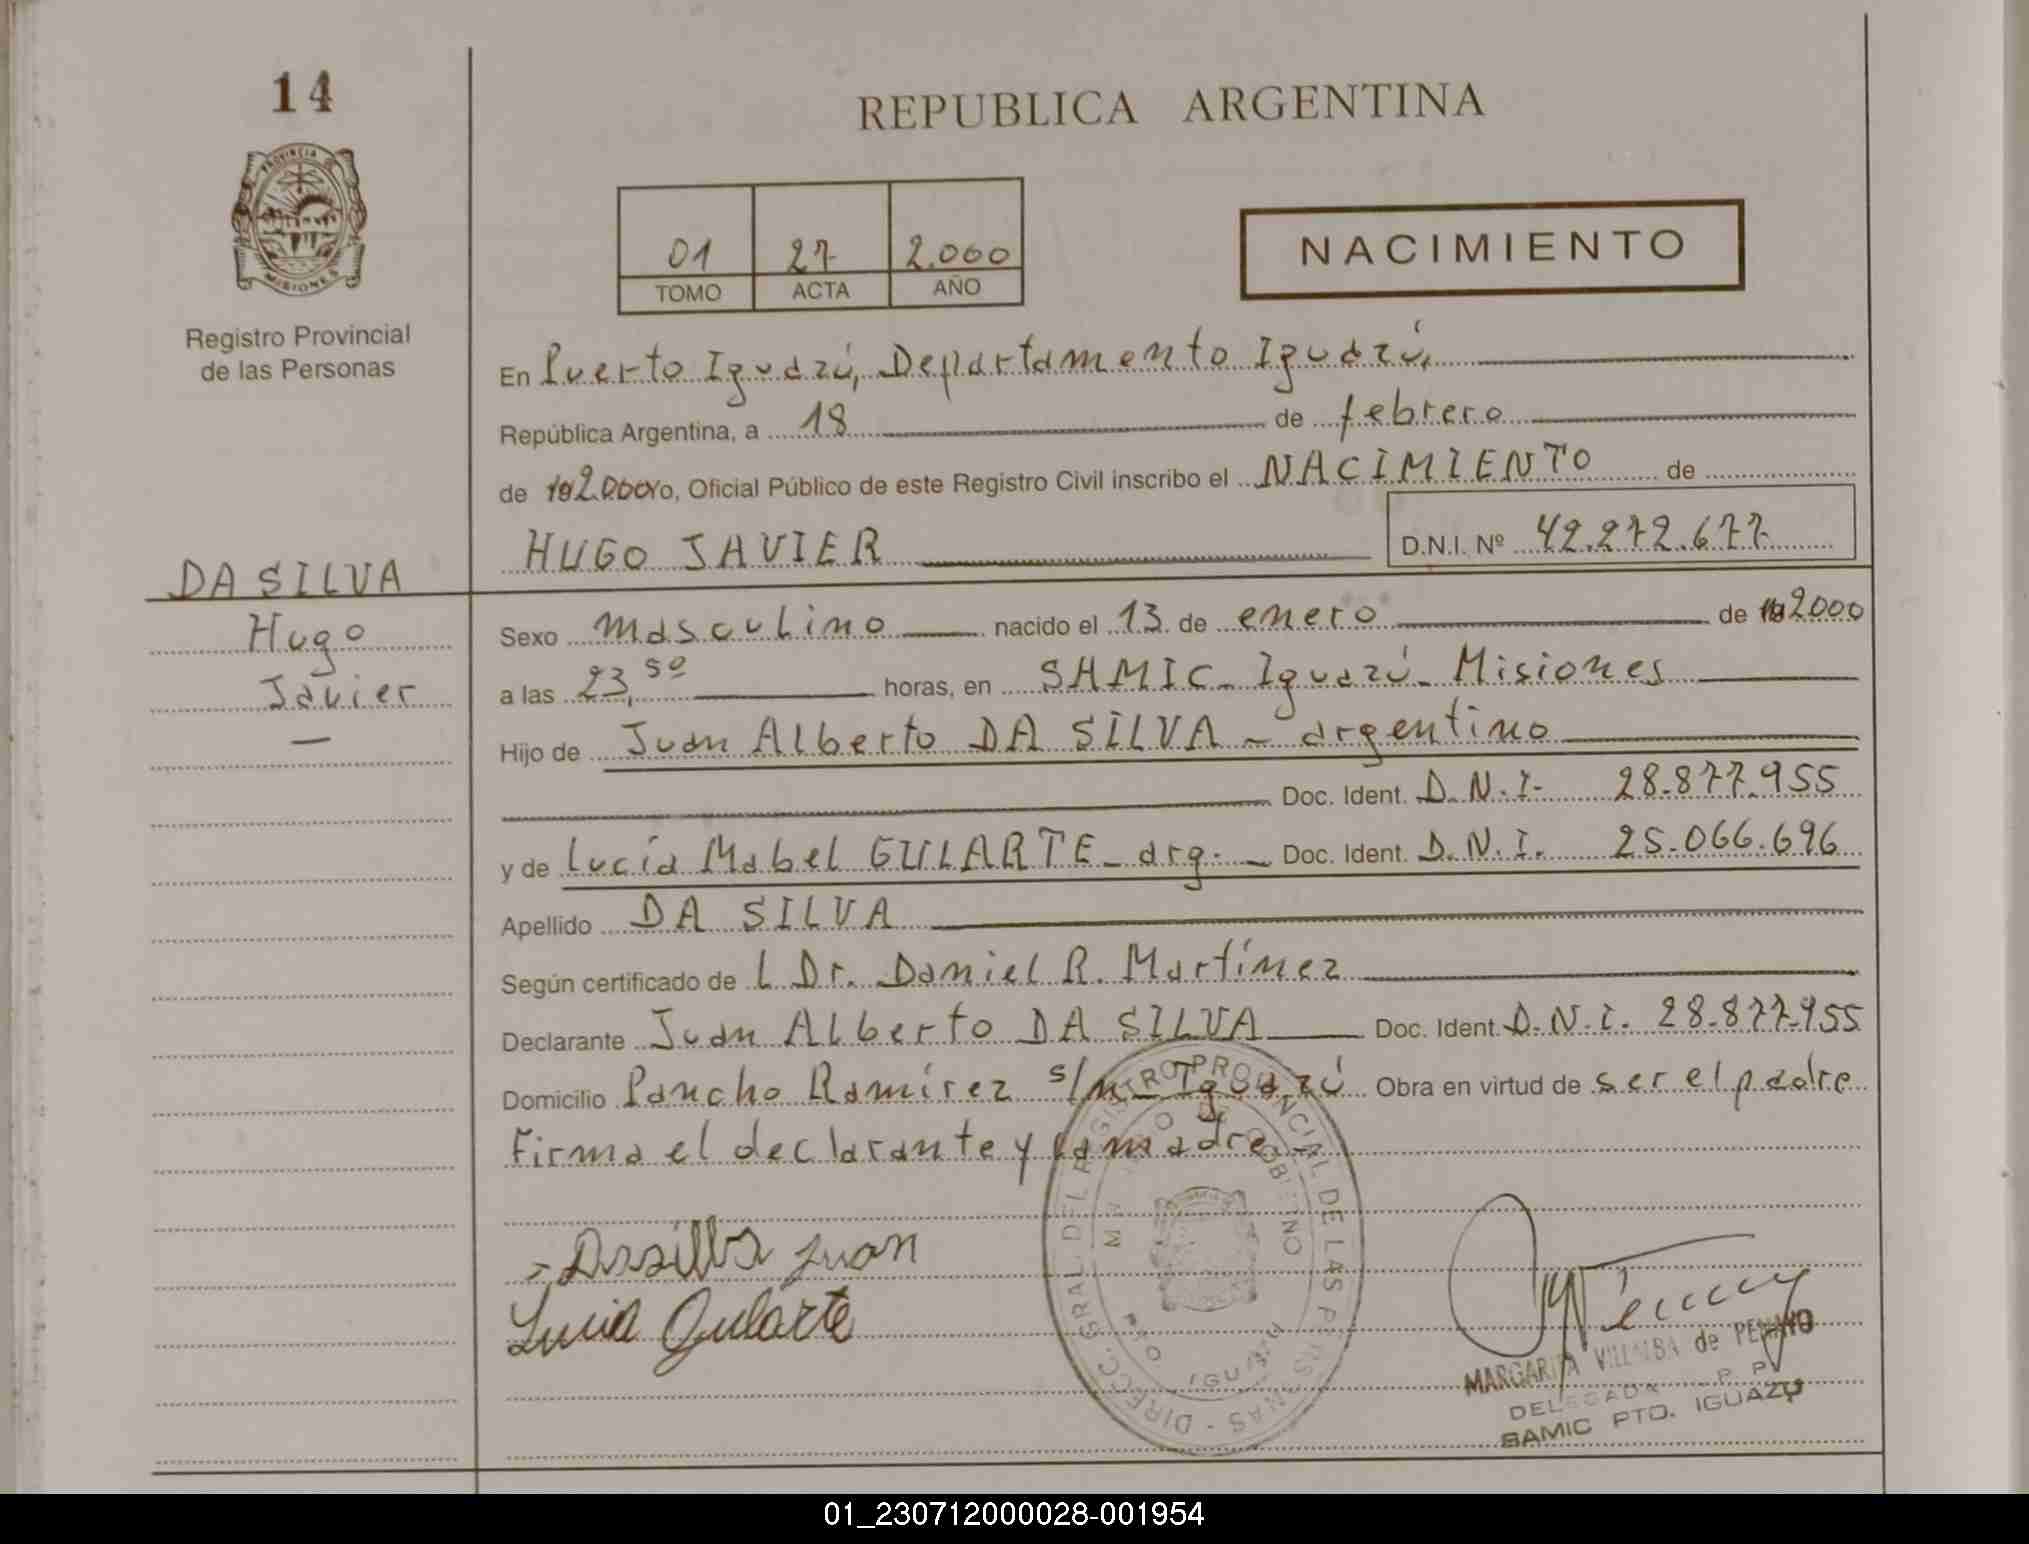 14
PROVINCIA DE
MISIONES
Registro Provincial
de las Personas
DA SILVA
Hugo
Javier
—
REPUBLICA ARGENTINA
01 27 2.000
TOMO ACTA AÑO
NACIMIENTO
En Puerto Iguazú, Departamento Iguazú,
República Argentina, a 18 de febrero
de 192.000 Yo, Oficial Público de este Registro Civil inscribo el NACIMIENTO de
HUGO JAVIER D.N.I. Nº 42.272.677
Sexo masculino nacido el 13 de enero de 192000
a las 23,50 horas, en SAMIC - Iguazú - Misiones
Hijo de Juan Alberto DA SILVA - argentino
Doc. Ident. D.N.I. 28.877.955
y de Lucía Mabel GULARTE - arg. - Doc. Ident. D.N.I. 25.066.696
Apellido DA SILVA
Según certificado de L Dr. Daniel R. Martínez
Declarante Juan Alberto DA SILVA Doc. Ident. D.N.I. 28.877.955
Domicilio Pancho Ramírez s/n - Iguazú Obra en virtud de ser el padre
Firma el declarante y la madre -
Dasilva Juan
Lucia Gularte
DIRECC. GRAL. DEL REGISTRO PROVINCIAL DE LAS PERSONAS
GOBIERNO
IGUAZU
MARGARITA VILLALBA de PENAYO
DELEGADA R.P.P.
SAMIC PTO. IGUAZU
01_230712000028-001954